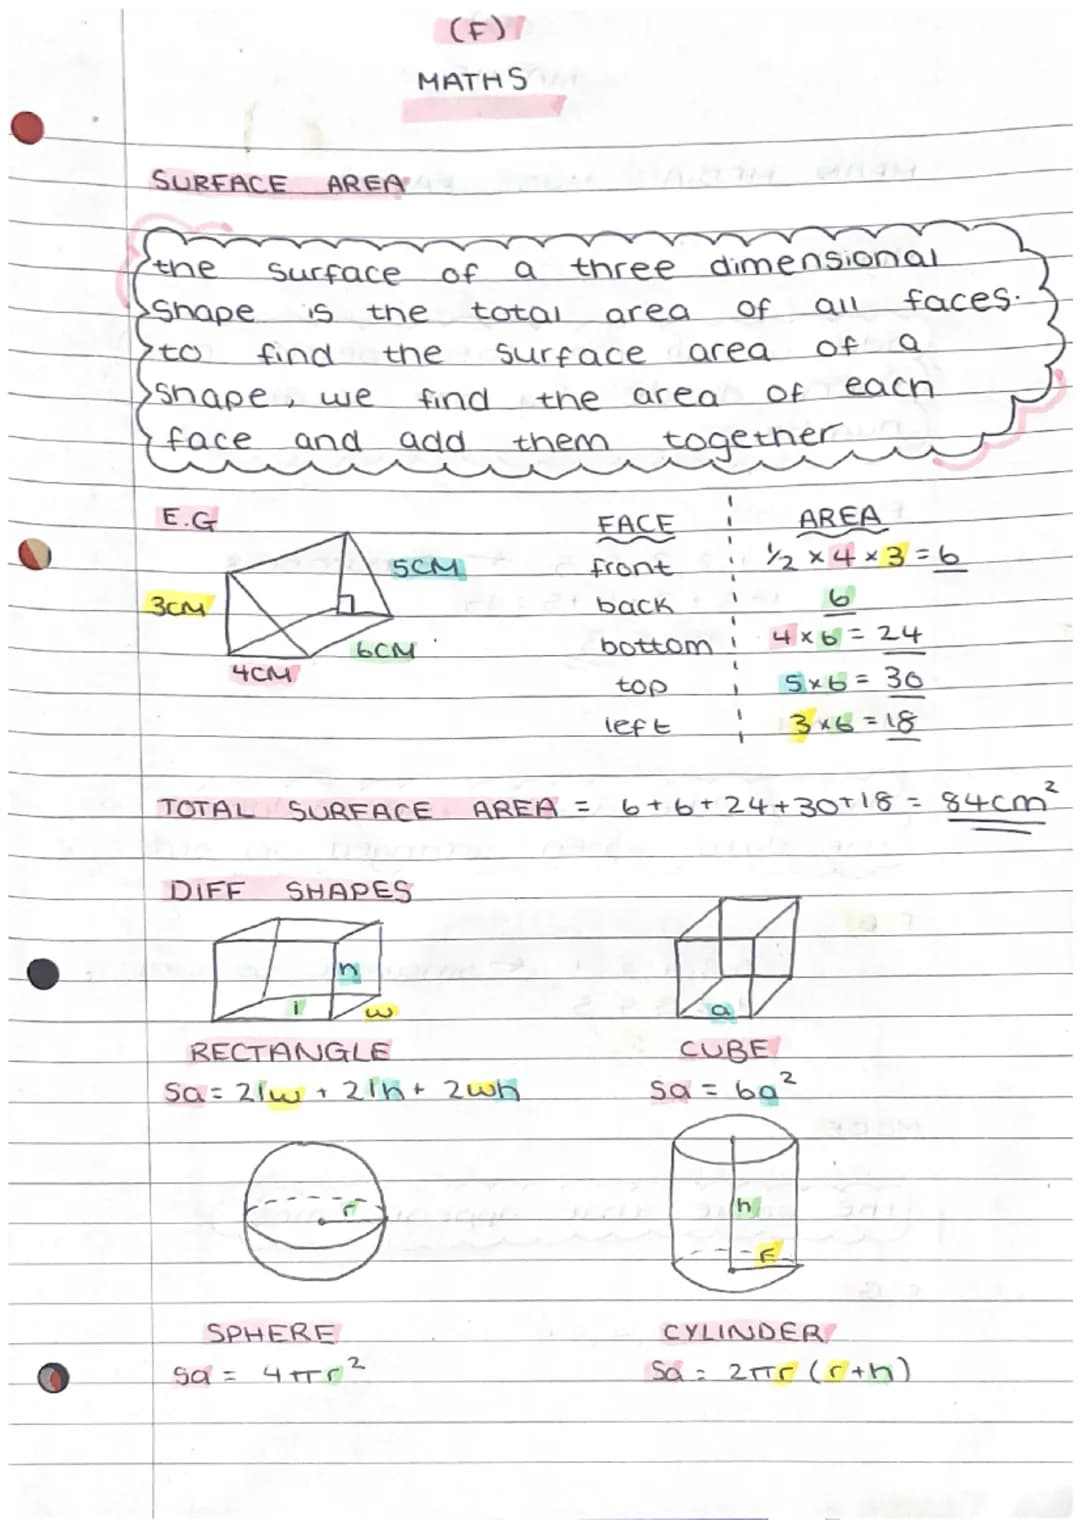 (F)
MATHS
SURFACE AREA
the surface of a three dimensional
shape is the total area of all faces.
to find the surface area of a
shape, we find the area of each
face and add them together
E.G
3CM
4CM
5CM
6CM
FACE AREA
front ½ × 4 × 3 = 6
back 6
bottom 4 × 6 = 24
top 5 × 6 = 30
left 3 × 6 = 18
TOTAL SURFACE AREA = 6 + 6 + 24 + 30 + 18 = 84cm²
DIFF SHAPES
h
l
w
a
RECTANGLE
Sa = 2lw + 2lh + 2wh
CUBE
Sa = 6a²
r
h
r
SPHERE
Sa = 4πr²
CYLINDER
Sa = 2πr (r+h)